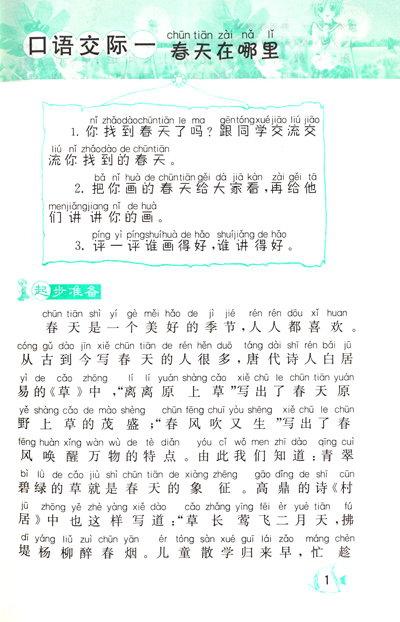 chūn tiān zài nǎ lǐ
口语交际一 春天在哪里
nǐ zhǎodàochūntiān le ma gēntóngxuéjiāo liú jiāo
1. 你找到春天了吗？跟同学交流交
liú nǐ zhǎodào de chūntiān
流你找到的春天。
bǎ nǐ huà de chūntiān gěi dà jiā kàn zài gěi tā
2. 把你画的春天给大家看，再给他
menjiǎngjiang nǐ de huà
们讲讲你的画。
píng yi píngshuíhuà de hǎo shuíjiǎng de hǎo
3. 评一评谁画得好，谁讲得好。
起步准备
chūn tiān shì yí gè měi hǎo de jì jié rén rén dōu xǐ huan
春天是一个美好的季节，人人都喜欢。
cóng gǔ dào jīn xiě chūn tiān de rén hěn duō táng dài shī rén bái jū
从古到今写春天的人很多，唐代诗人白居
yì de cǎo zhōng lí lí yuán shàng cǎo xiě chū le chūn tiān yuán
易的《草》中，“离离原上草”写出了春天原
yě shàng cǎo de mào shèng chūn fēng chuī yòu shēng xiě chū le chūn
野上草的茂盛；“春风吹又生”写出了春
fēng huàn xǐng wàn wù de tè diǎn yóu cǐ wǒ men zhī dào qīng cuì
风唤醒万物的特点。由此我们知道：青翠
bì lǜ de cǎo jiù shì chūn tiān de xiàng zhēng gāo dǐng de shī cūn
碧绿的草就是春天的象征。高鼎的诗《村
jū zhōng yě zhè yàng xiě dào cǎo zhǎng yīng fēi èr yuè tiān fú
居》中也这样写道：“草长莺飞二月天，拂
dī yáng liǔ zuì chūn yān ér tóng sàn xué guī lái zǎo máng chèn
堤杨柳醉春烟。儿童散学归来早，忙趁
1